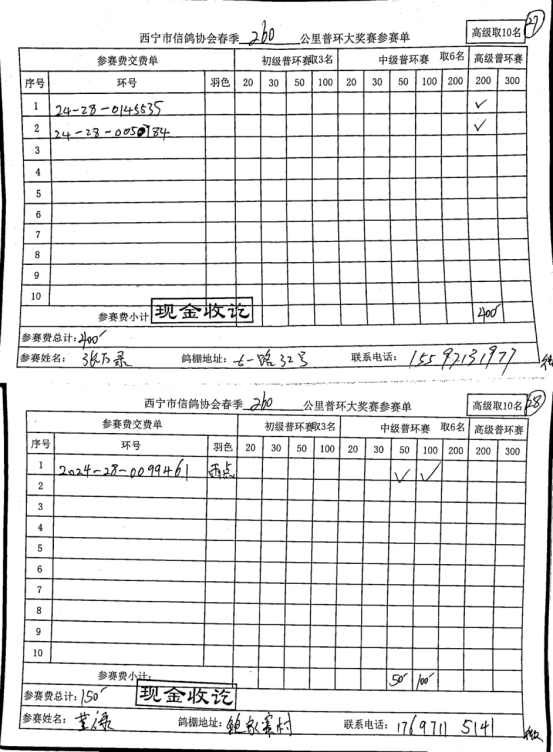 西宁市信鸽协会春季 260 公里普环大奖赛参赛单 高级取10名 27
参赛费交费单 初级普环赛取3名 中级普环赛 取6名 高级普环赛
序号 环号 羽色 20 30 50 100 20 30 50 100 200 200 300
1 24-28-0145535 ✓
2 24-28-0050184 ✓
3
4
5
6
7
8
9
10
参赛费小计 现金收讫 400
参赛费总计:400
参赛姓名: 鸽棚地址: 七一路32号 联系电话: 15592131977
西宁市信鸽协会春季 260 公里普环大奖赛参赛单 高级取10名 28
参赛费交费单 初级普环赛取3名 中级普环赛 取6名 高级普环赛
序号 环号 羽色 20 30 50 100 20 30 50 100 200 200 300
1 2024-28-0099461 雨点 ✓ ✓
2
3
4
5
6
7
8
9
10
参赛费小计: 50 100
参赛费总计:150 现金收讫
参赛姓名: 鸽棚地址: 鲍家寨村 联系电话: 1769711 5141